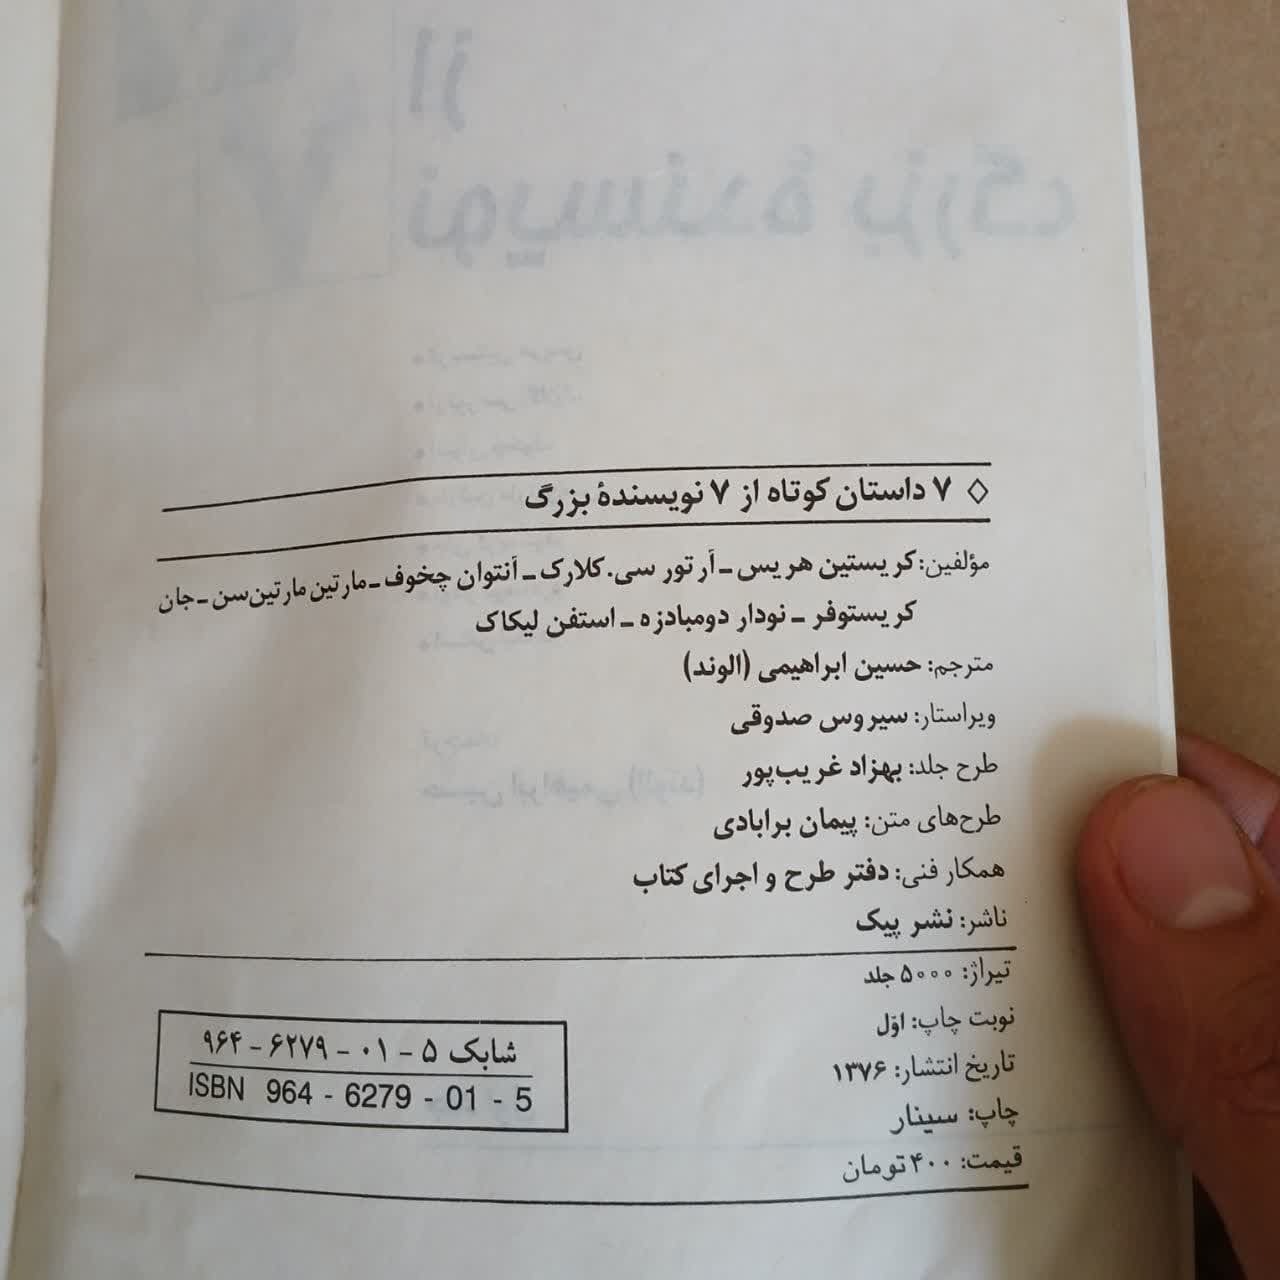 از
نویسندهٔ بزرگ
۷
◊ ۷ داستان کوتاه از ۷ نویسندهٔ بزرگ
مؤلفین: کریستین هریس ـ آرتور سی. کلارک ـ آنتوان چخوف ـ مارتین مارتین‌سن ـ جان
کریستوفر ـ نودار دومبادزه ـ استفن لیکاک
مترجم: حسین ابراهیمی (الوند)
ویراستار: سیروس صدوقی
طرح جلد: بهزاد غریب‌پور
طرح‌های متن: پیمان برابادی
همکار فنی: دفتر طرح و اجرای کتاب
ناشر: نشر پیک
تیراژ: ۵۰۰۰ جلد
نوبت چاپ: اوّل
تاریخ انتشار: ۱۳۷۶
چاپ: سینار
قیمت: ۴۰۰ تومان
شابک ۵ - ۰۱ - ۶۲۷۹ - ۹۶۴
ISBN 964 - 6279 - 01 - 5